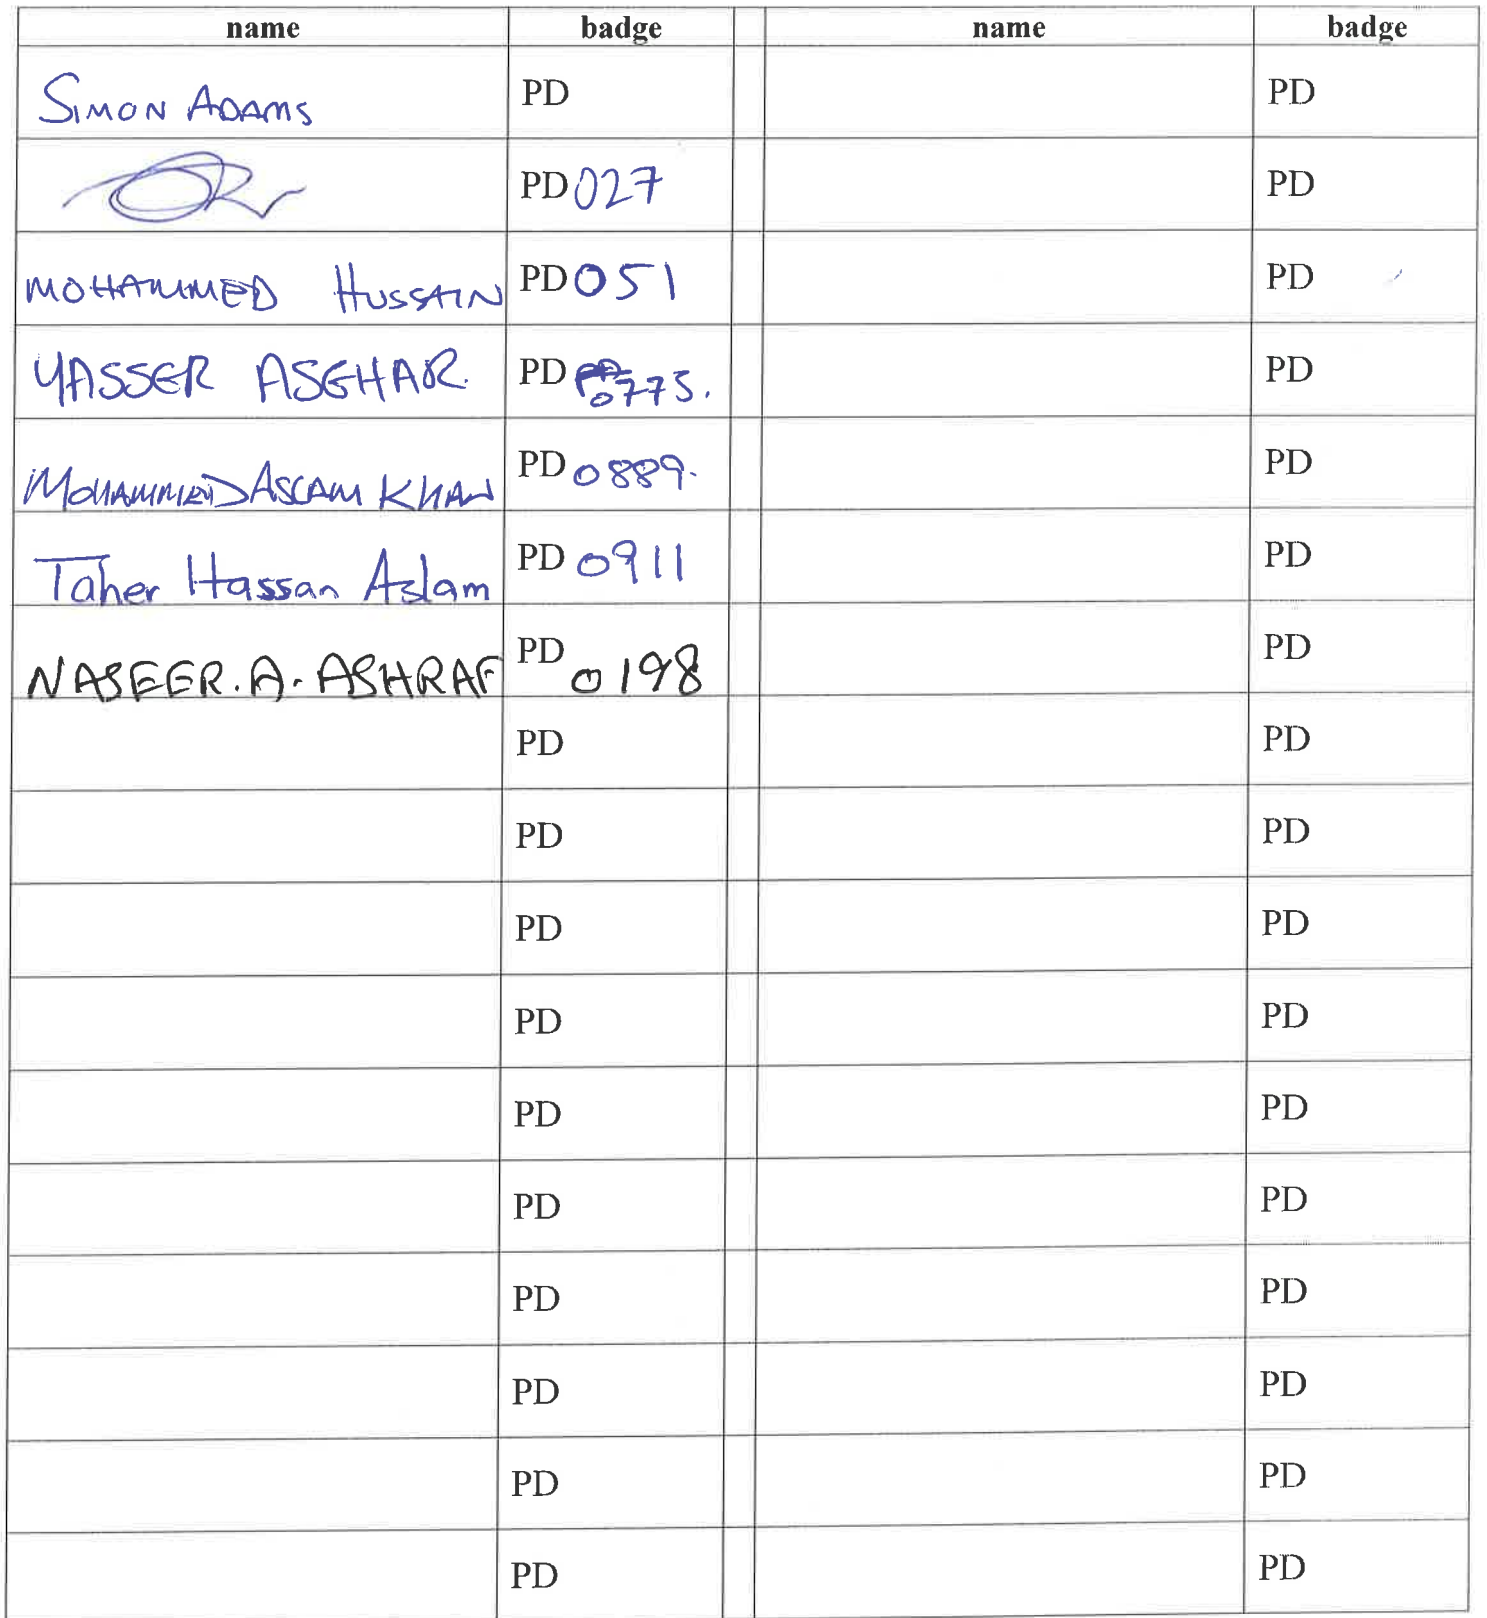 name badge name badge
SIMON ADAMS PD PD
PD 027 PD
MOHAMMED HUSSAIN PD 051 PD
YASSER ASGHAR. PD 0775. PD
MOHAMMED ASLAM KHAN PD 0889. PD
Taher Hassan Aslam PD 0911 PD
NASEER. A. ASHRAF PD 0198 PD
PD PD
PD PD
PD PD
PD PD
PD PD
PD PD
PD PD
PD PD
PD PD
PD PD